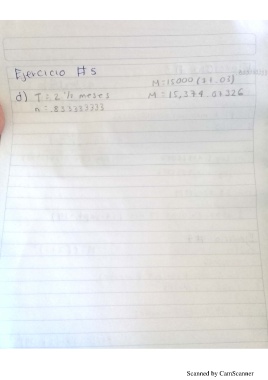 Ejercicio #5
M=15000(
d) T=2 ½ meses
M=15,374.07326
n=.833333333
Scanned by CamScanner